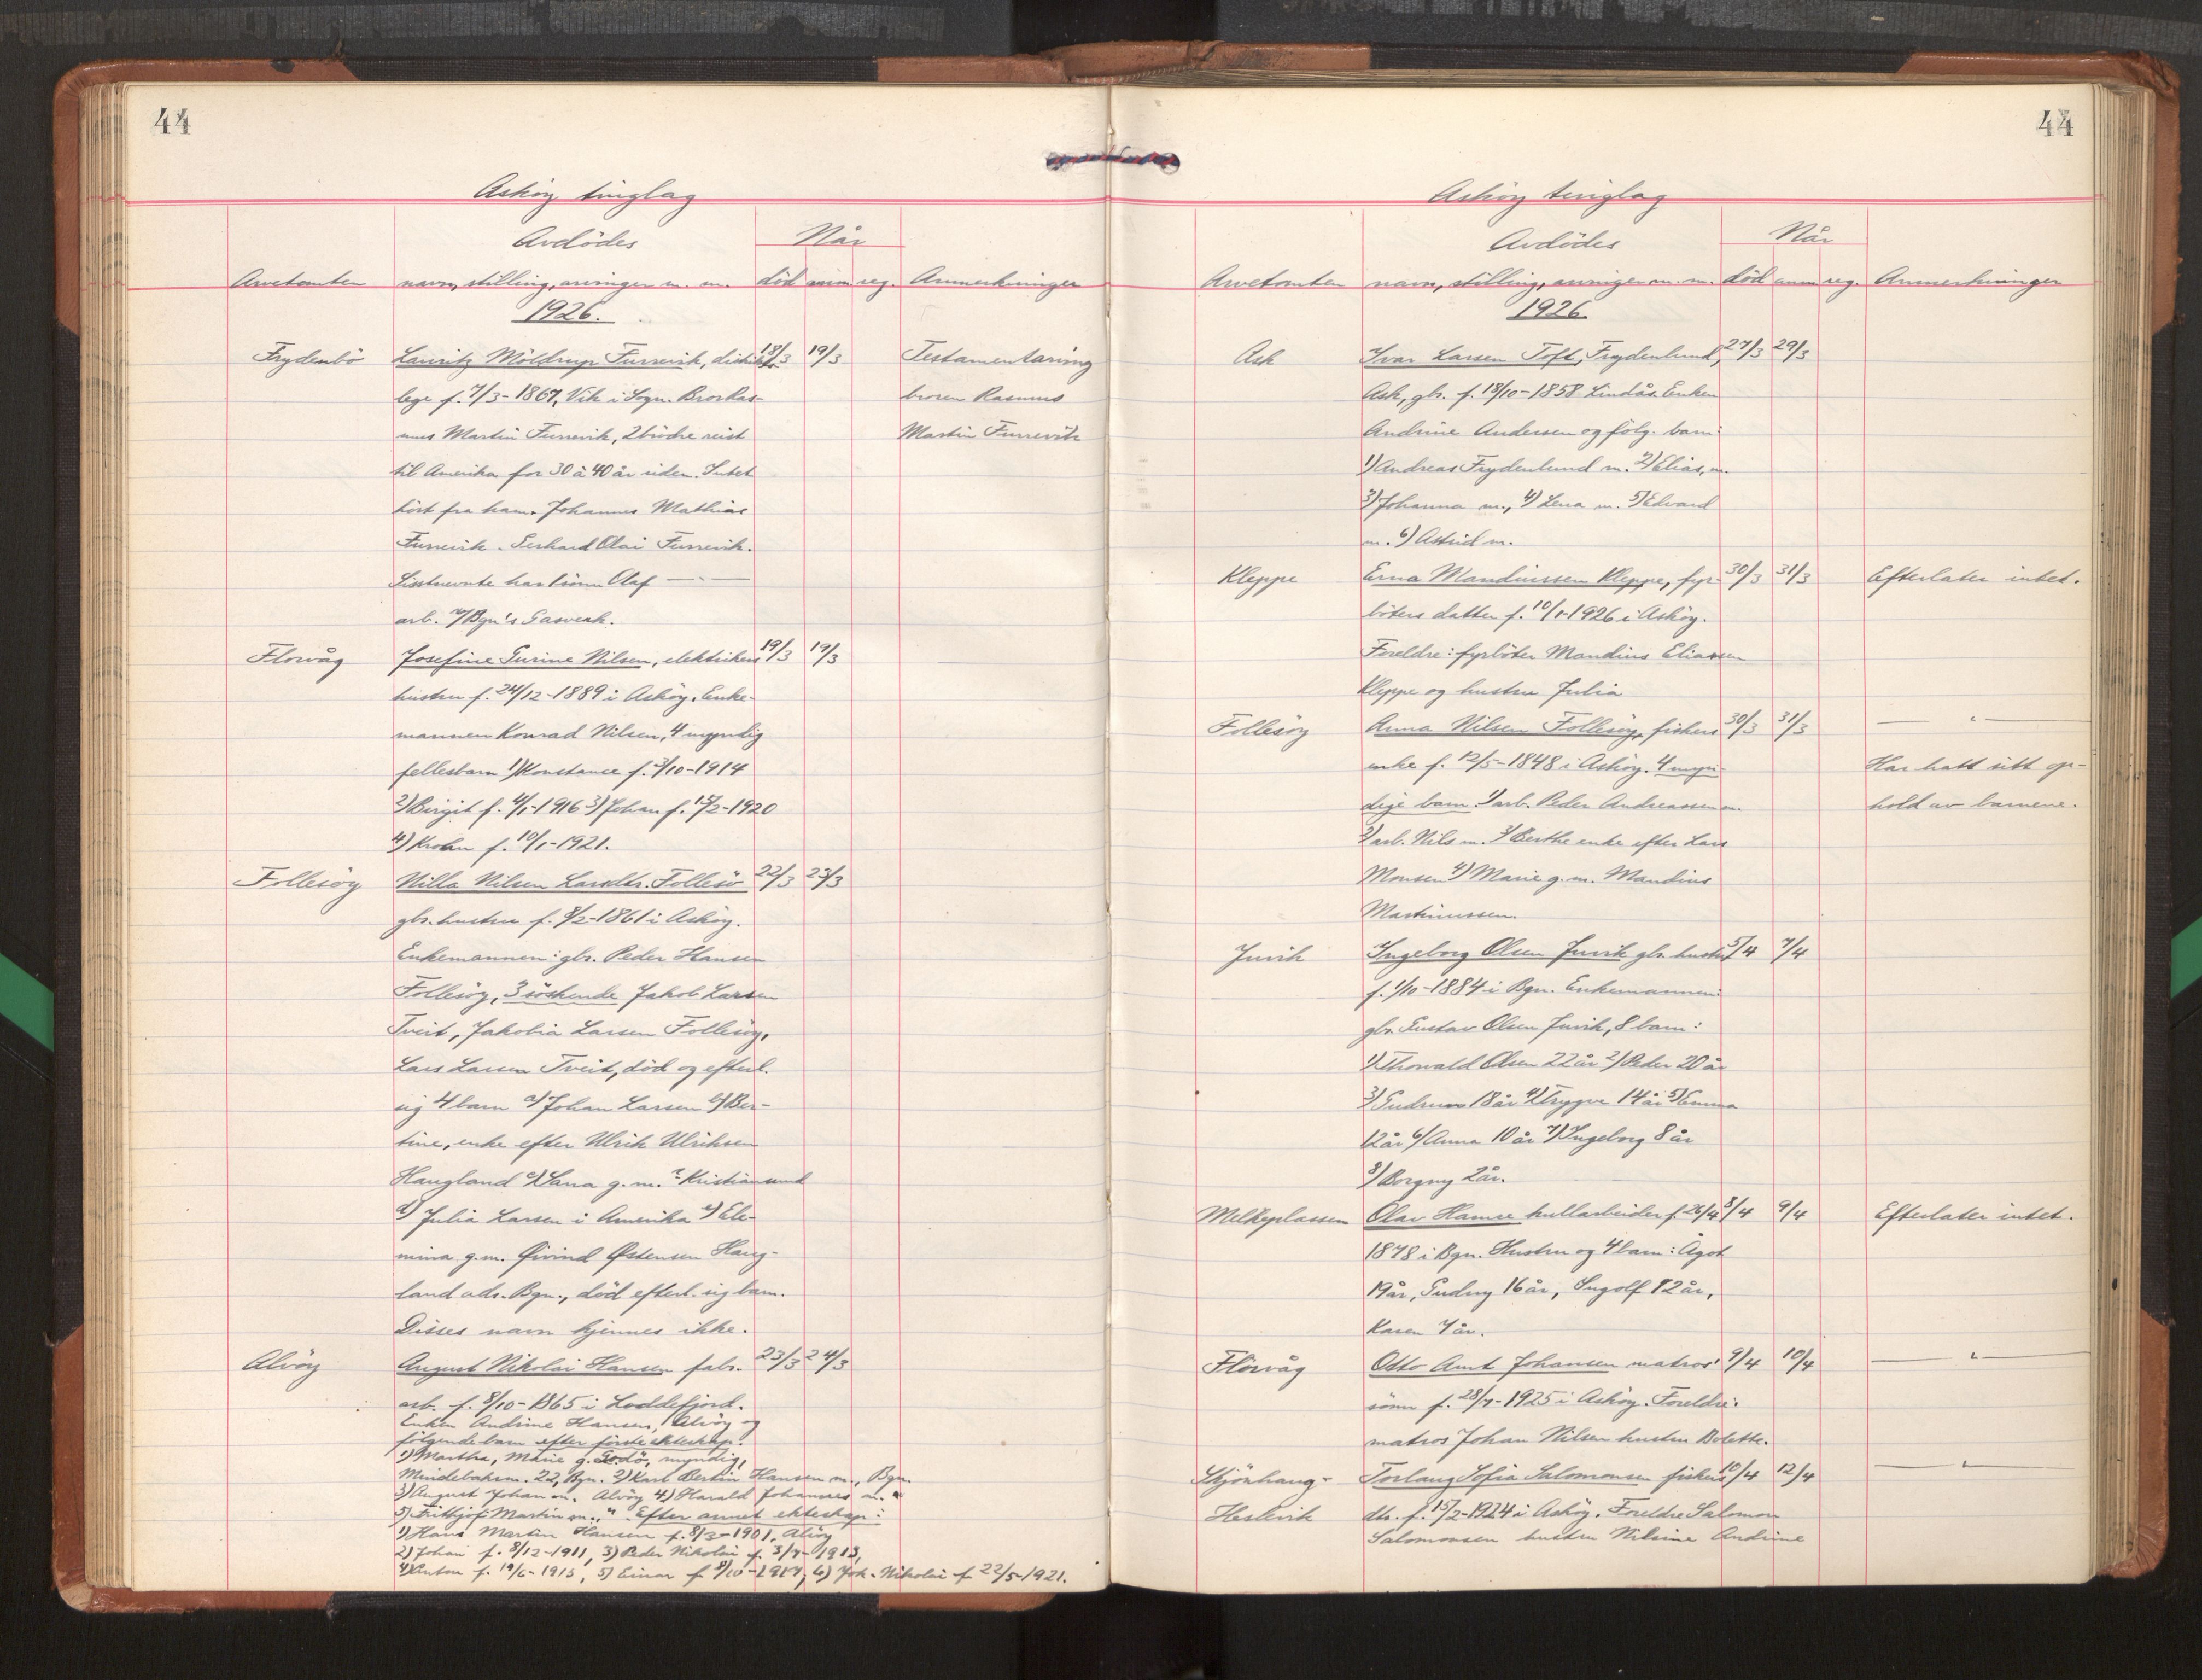 44
Askøy tinglag
Avdödes
Når
Arvetomten
navn, stilling, arvinger m. m.
död
anm.
reg.
Anmerkninger
1926.
Frydenbö
Lauritz Möldrup Furrevik, distrikts
18/3
19/3
Testamentarving
lege f. 7/3 - 1867, Vik i Sogn. Bror Ras-
broren Rasmus
mus Martin Furrevik, 2 brödre reist
Martin Furrevik
til Amerika for 30 à 40 år siden. Intet
hört fra ham. Johannes Mathias
Furrevik. Gerhard Olai Furrevik.
Sistnevnte har 1 sönn Olaf — " —
arb. v/Bgn's Gasverk.
Florvåg
Josefine Gurine Nilsen, elektrikers
19/3
19/3
hustru f. 24/12 - 1889 i Askøy. Enke-
mannen Konrad Nilsen, 4 umyndig
fellesbarn 1) Konstance f. 3/10 - 1914
2) Birgit f. 4/1 - 1916 3) Johan f. 15/2 - 1920
4) f. 10/1 - 1921.
Follesøy
Nilla Nilsen Larsdtr. Follesö
22/3
23/3
gbr. hustru f. 8/2 - 1861 i Askøy.
Enkemannen: gbr. Peder Hansen
Follesøy, 3 söskende Jakob Larsen
Tveit, Jakobia Larsen Follesøy,
Lars Larsen Tveit, död og efterl.
sig 4 barn a) Johan Larsen b) Ber-
tine, enke efter Ulrik Ulriksen
Haugland c) g. m. ? Kristiansund
d) Julia Larsen i Amerika e) Ele-
mina g. m. Øivind Østensen Haug-
land adr. Bgn., död efterl. sig barn.
Disses navn kjennes ikke.
Alvöy
August Nikolai Hansen fabr.
23/3
24/3
arb. f. 8/10 - 1865 i Loddefjord.
Enken Andrine Hansen, Alvöy og
fölgende barn efter förste ekteskap:
1) Martha, Marie g. Godö, myndig,
Mindebakm. 22, Bgn. 2) Karl Bertin Hansen m., Bgn.
3) August Johan m. Alvöy 4) Harald Johannes m. "
5) Frithjof Martin m., " Efter annet ekteskap:
1) Hans Martin Hansen f. 8/3 - 1901, Alvöy
2) Johan f. 8/12 - 1911, 3) Peder Nikolai f. 3/7 - 1913,
4) Anton f. 19/6 - 1915, 5) Einar f. 8/10 - 1917, 6) Joh. Nikolai f. 22/5 - 1921.
44
Askøy tinglag
Avdödes
Når
Arvetomten
navn, stilling, arvinger m. m.
död
anm
reg.
Anmerkninger
1926
Ask
Ivar Larsen Toft, Frydenlund,
27/3
29/3
Ask, gbr. f. 18/10 - 1858 Lindås. Enken
Andrine Andersen og fölg. barn:
1) Andreas Frydenlund m. 2) Elias, m.
3) Johanna m., 4) Lena m. 5) Edvard
m. 6) Astrid m.
Kleppe
Erna Mandiussen Kleppe, fyr-
30/3
31/3
Efterlater intet.
böters datter f. 10/1 - 1926 i Askøy.
Foreldre: fyrböter Mandius Eliassen
Kleppe og hustru Julia
Follesøy
Anna Nilsen Follesøy, fiskers
30/3
31/3
— " —
enke f. 12/5 - 1848 i Askøy. 4 myn-
Har hatt sitt op-
dige barn. 1) arb. Peder Andreassen m.
hold av barnene.
2) arb. Nils m. 3) Berthe enke efter Lars
Monsen 4) Marie g. m. Mandius
Martinussen
Juvik
Ingeborg Olsen Juvik gbr. hustru
5/4
7/4
f. 1/10 - 1884 i Bgn. Enkemannen:
gbr. Gustav Olsen Juvik, 8 barn:
1) Thorvald Olsen 22 år 2) Peder 20 år
3) Gudrun 18 år 4) Trygve 14 år 5) Emma
12 år 6) Anna 10 år 7) Ingeborg 8 år
8) Borgny 2 år.
Melkeplassen
Olav Hamre kullarbeider f. 26/4
8/4
9/4
Efterlater intet.
1878 i Bgn. Hustru og 4 barn: Ågot
19 år, Gudny 16 år, Ingolf 12 år,
Karen 7 år.
Florvåg
Otto Arnt Johansen matros'
9/4
10/4
— " —
sönn f. 28/7 - 1925 i Askøy. Foreldre:
matros Johan Nilsen hustru Bolette.
Skjönhaug -
Torlaug Sofia Salomonsen fiskers
10/4
12/4
— " —
Heslevik
dtr. f. 15/2 - 1924 i Askøy. Foreldre Salomon
Salomonsen hustru Nilsine Andrine